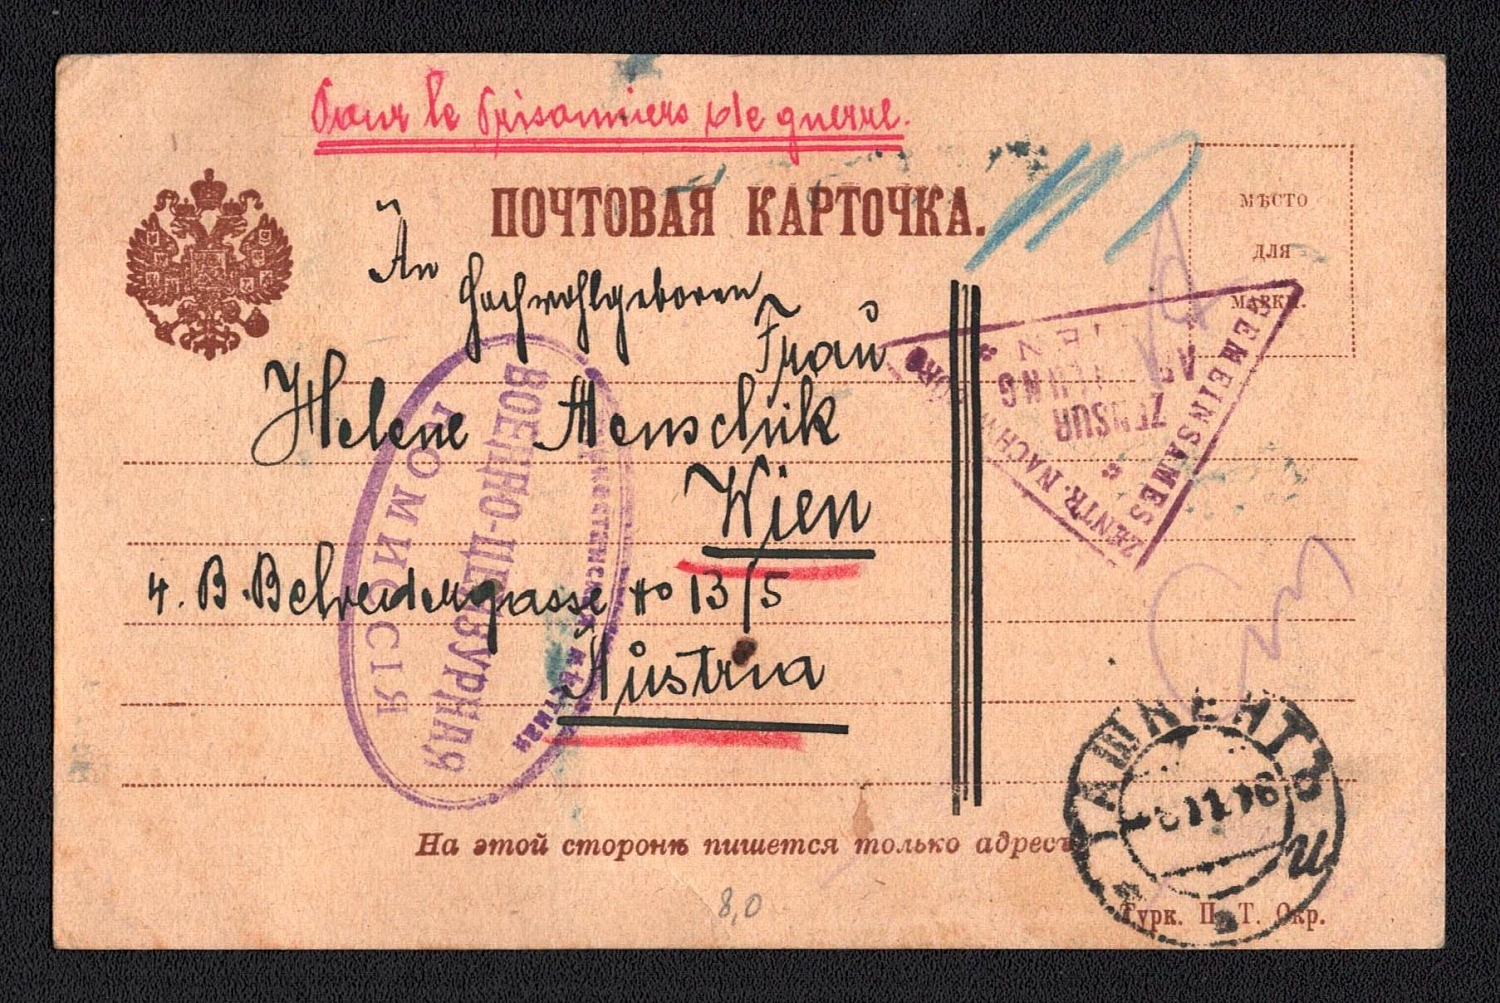 Pour le prisonniers de guerre.
ПОЧТОВАЯ КАРТОЧКА.
МѢСТО
ДЛЯ
МАРКИ.
An
Hochwohlgeboren
Frau
Helene Menschik
Wien
4. B. Belvederegasse No 13/5
Austria
ВОЕННО-ЦЕНЗУРНАЯ
КОМИССІЯ
МѢСТНАЯ
GEMEINSAMES
ZENTR. NACHW. BURO
ZENSUR
ABTEILUNG
ТАШКЕНТЪ
11.16
и
На этой сторонѣ пишется только адресъ
Турк. П. Т. Окр.
8,0